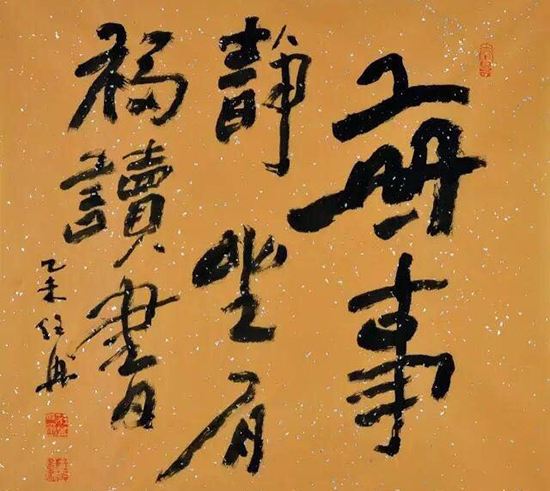 無事
靜坐有
福讀書
乙未